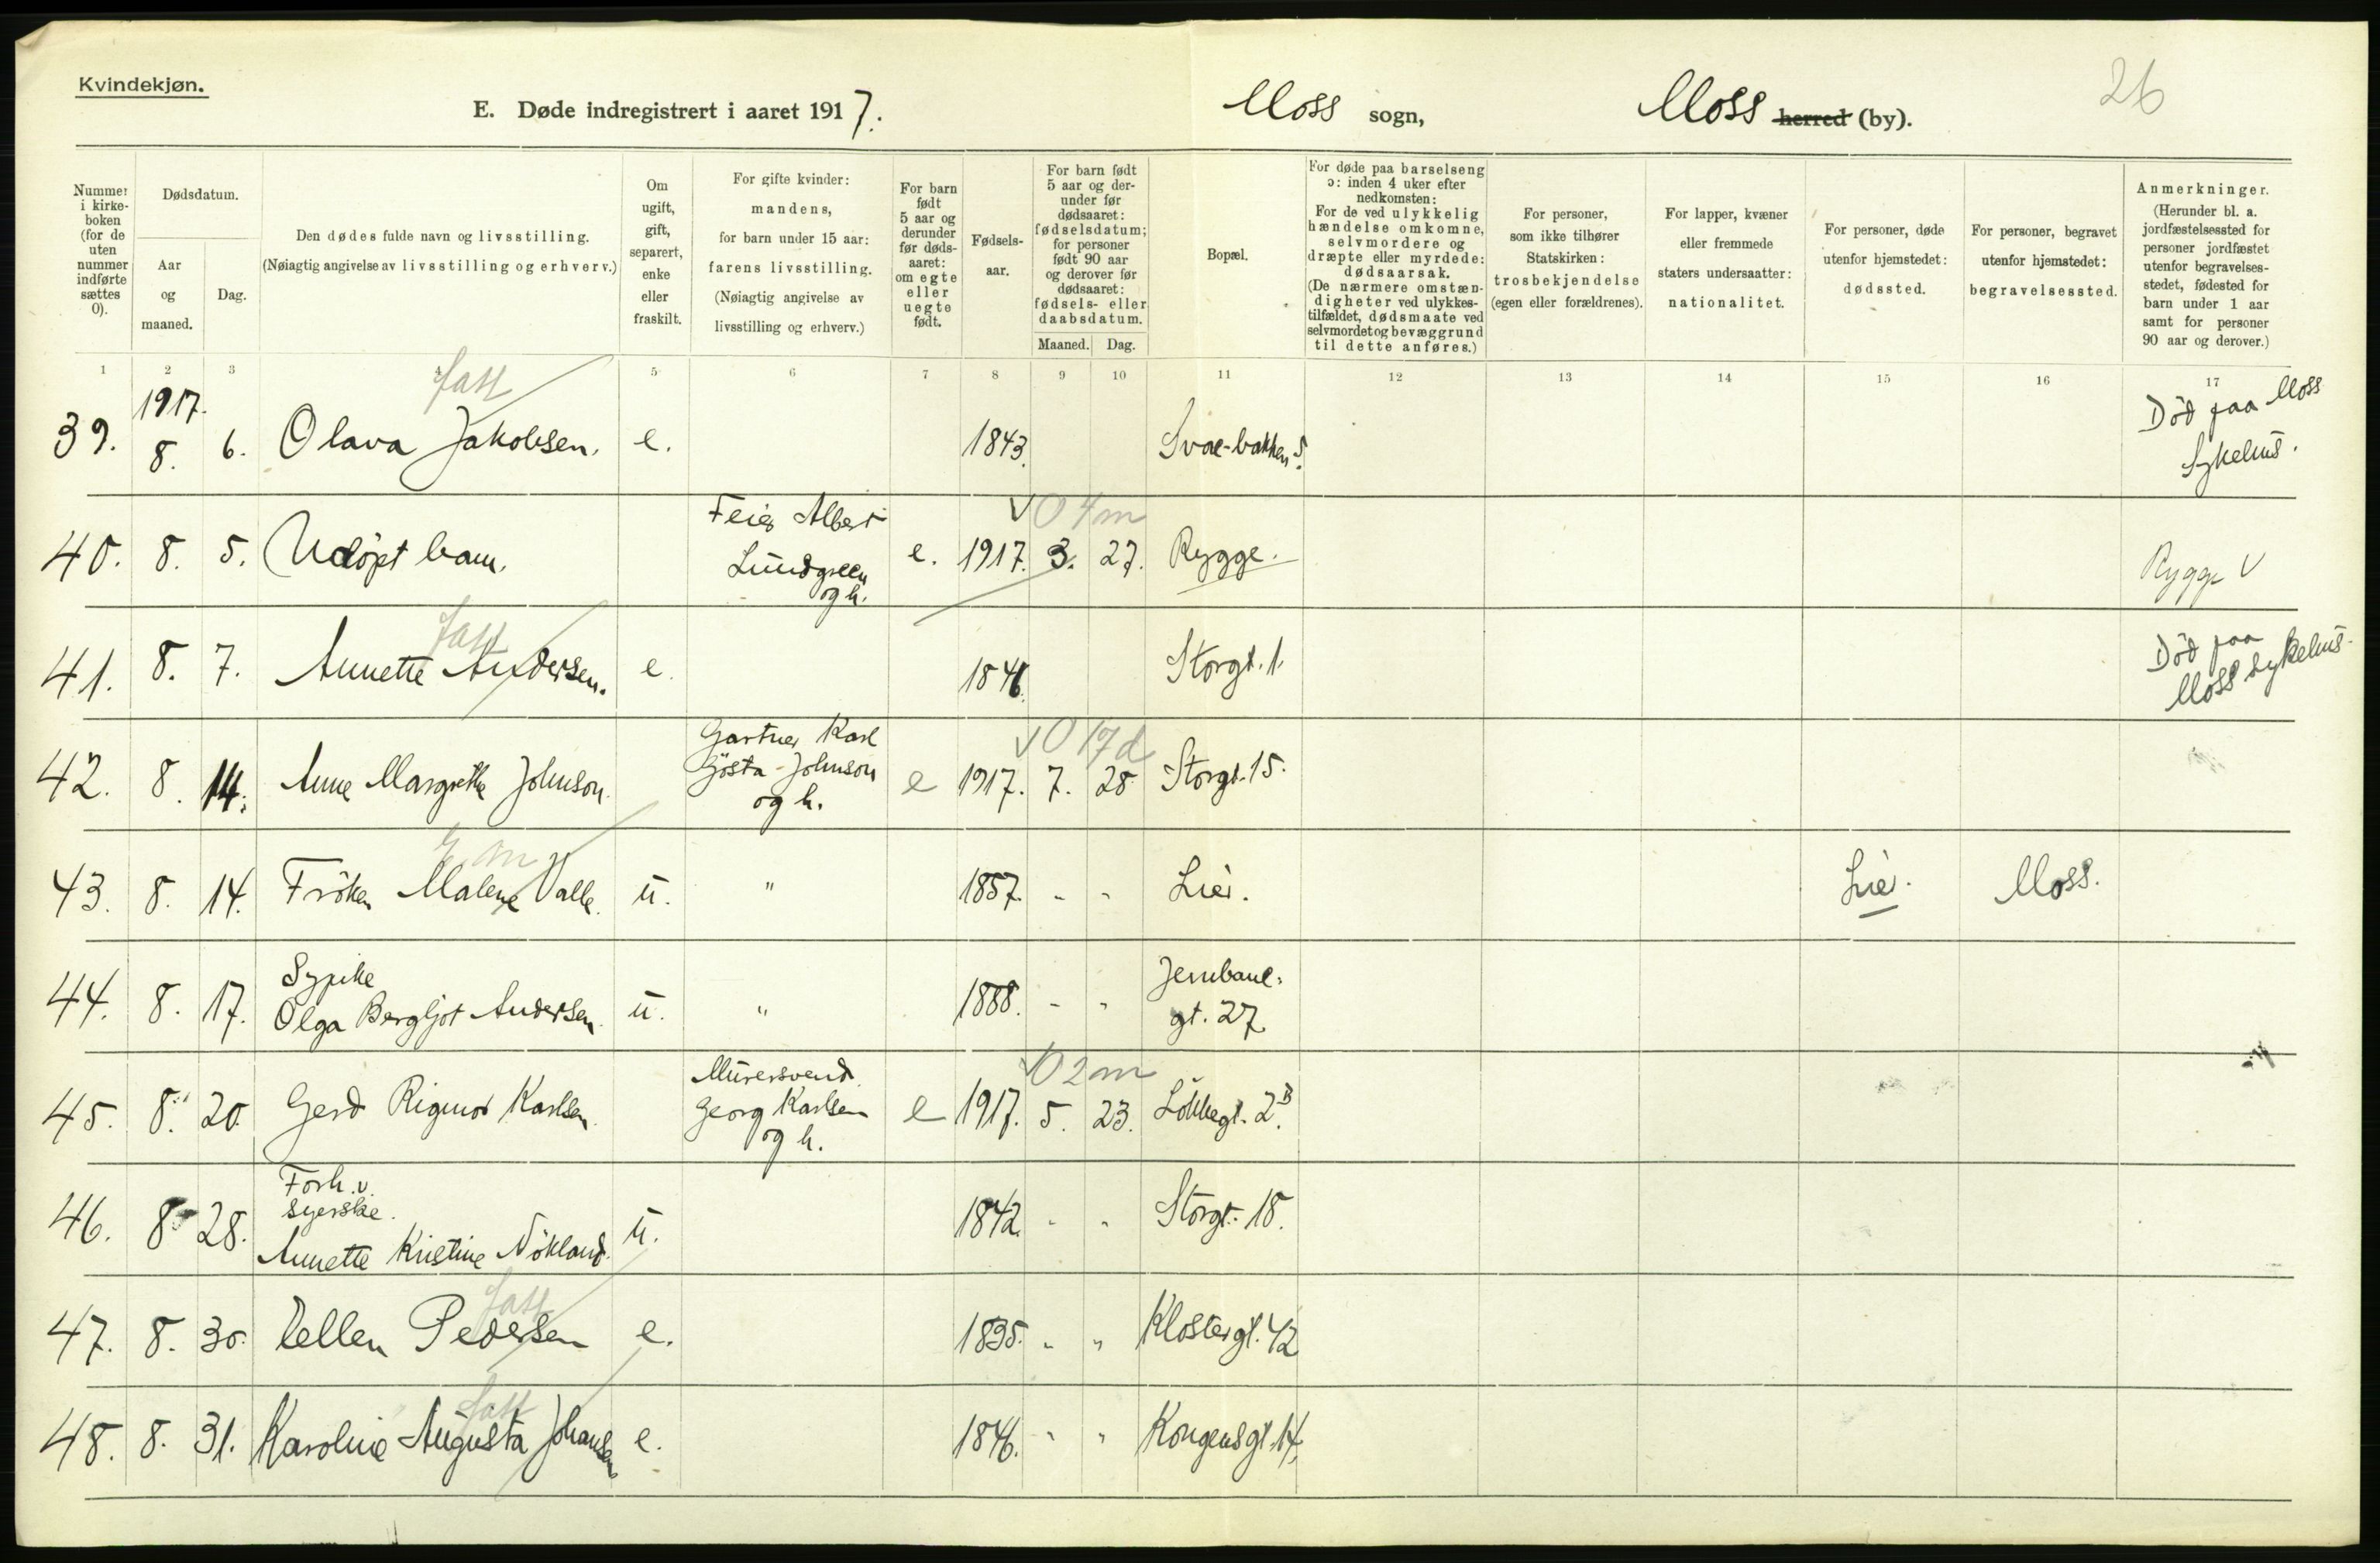 Kvindekjøn.
E. Døde indregistrert i aaret 1917.
Moss sogn,
Moss herred (by).
26
Nummer i kirke-boken (for de uten nummer indførte sættes 0).
Dødsdatum.
Aar og maaned.
Dag.
Den dødes fulde navn og livsstilling.
(Nøiagtig angivelse av livsstilling og erhverv.)
Om ugift, gift, separert, enke eller fraskilt.
For gifte kvinder: mandens, for barn under 15 aar: farens livsstilling.
(Nøiagtig angivelse av livsstilling og erhverv.)
For barn født 5 aar og derunder før døds-aaret: om egte eller uegte født.
Fødsels-aar.
For barn født 5 aar og der-under før dødsaaret: fødselsdatum; for personer født 90 aar og derover før dødsaaret: fødsels- eller daabsdatum.
Maaned. Dag.
Bopæl.
For døde paa barselseng ɔ: inden 4 uker efter nedkomsten:
For de ved ulykkelig hændelse omkomne, selvmordere og dræpte eller myrdede: dødsaarsak.
(De nærmere omstæn-digheter ved ulykkes-tilfældet, dødsmaate ved selvmordet og bevæggrund til dette anføres.)
For personer, som ikke tilhører Statskirken: trosbekjendelse (egen eller forældrenes).
For lapper, kvæner eller fremmede staters undersaatter: nationalitet.
For personer, døde utenfor hjemstedet: dødssted.
For personer, begravet utenfor hjemstedet: begravelsessted.
Anmerkninger.
(Herunder bl. a. jordfæstelsessted for personer jordfæstet utenfor begravelses-stedet, fødested for barn under 1 aar samt for personer 90 aar og derover.)
1 2 3 4 5 6 7 8 9 10 11 12 13 14 15 16 17
1917.
39. 8. 6. Olava Jakobsen. e. 1843. Svae-bakken 5. Død paa Moss Sykehus.
fatt
40. 8. 5. Udöpt barn. Feier Albert Lundgreen og h. e. 1917. 3. 27. Rygge. Rygge V
V 0 4 m
41. 8. 7. Annette Andersen. e. 1846. Storgt. 1. Død paa Moss sykehus.
fatt
42. 8. 14. Anne Margrethe Johnson. Gartner Karl Gösta Johnson og h. e 1917. 7. 28. Storgt. 15.
V 0 17 d
43. 8. 14. Fröken Malene Valle. u. " 1857. " " Lier. Lier. Moss.
44. 8. 17. Sypike Olga Bergljot Andersen. u. " 1888. " " Jernbane-gt. 27.
45. 8. 20. Gerd Rigmor Karlsen. Murersvend Georg Karlsen og h. e 1917. 5. 23. Lökkegt. 2B.
V 0 2 m
46. 8. 28. Forh.v. syerske. Annette Kristine Nökland. u. 1842. " " Storgt. 18.
47. 8. 30. Ellen Pedersen e. 1835. " " Klostergt. 42
fatt
48. 8. 31. Karoline Augusta Johansen e. 1846. " " Kongensgt. 14.
fatt